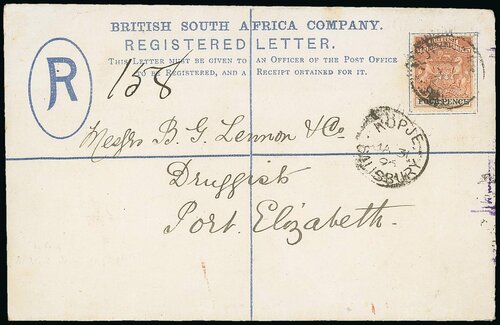 BRITISH SOUTH AFRICA COMPANY.
REGISTERED LETTER.
THIS LETTER MUST BE GIVEN TO AN OFFICER OF THE POST OFFICE
TO BE REGISTERED, AND A RECEIPT OBTAINED FOR IT.
R
158
FOUR PENCE
KOPJE
SALISBURY
Messrs B. G. Lennon & Co
Druggists
Port Elizabeth.